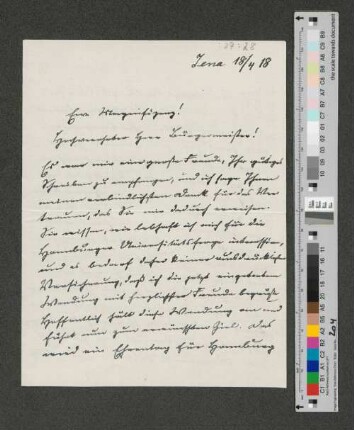 Jena 18/4 18
Eure Magnifizenz!
Hochverehrter Herr Bürgermeister!
Es war mir eine große Freude, Ihr gütiges
Schreiben zu empfangen, und ich sage Ihnen
meinen verbindlichsten Dank für das Ver-
trauen, das Sie mir dadurch erweisen.
Sie wissen, wie lebhaft ich mich für die
Hamburger Universitätsfrage interessiere,
und es bedarf daher keiner ausdrücklichen
Versicherung, daß ich die jetzt eingetretene
Wendung mit herzlichster Freude begrüße.
Hoffentlich hält diese Wendung an und
führt nun zum ersehnten Ziel. Das
wird ein Ehrentag für Hamburg